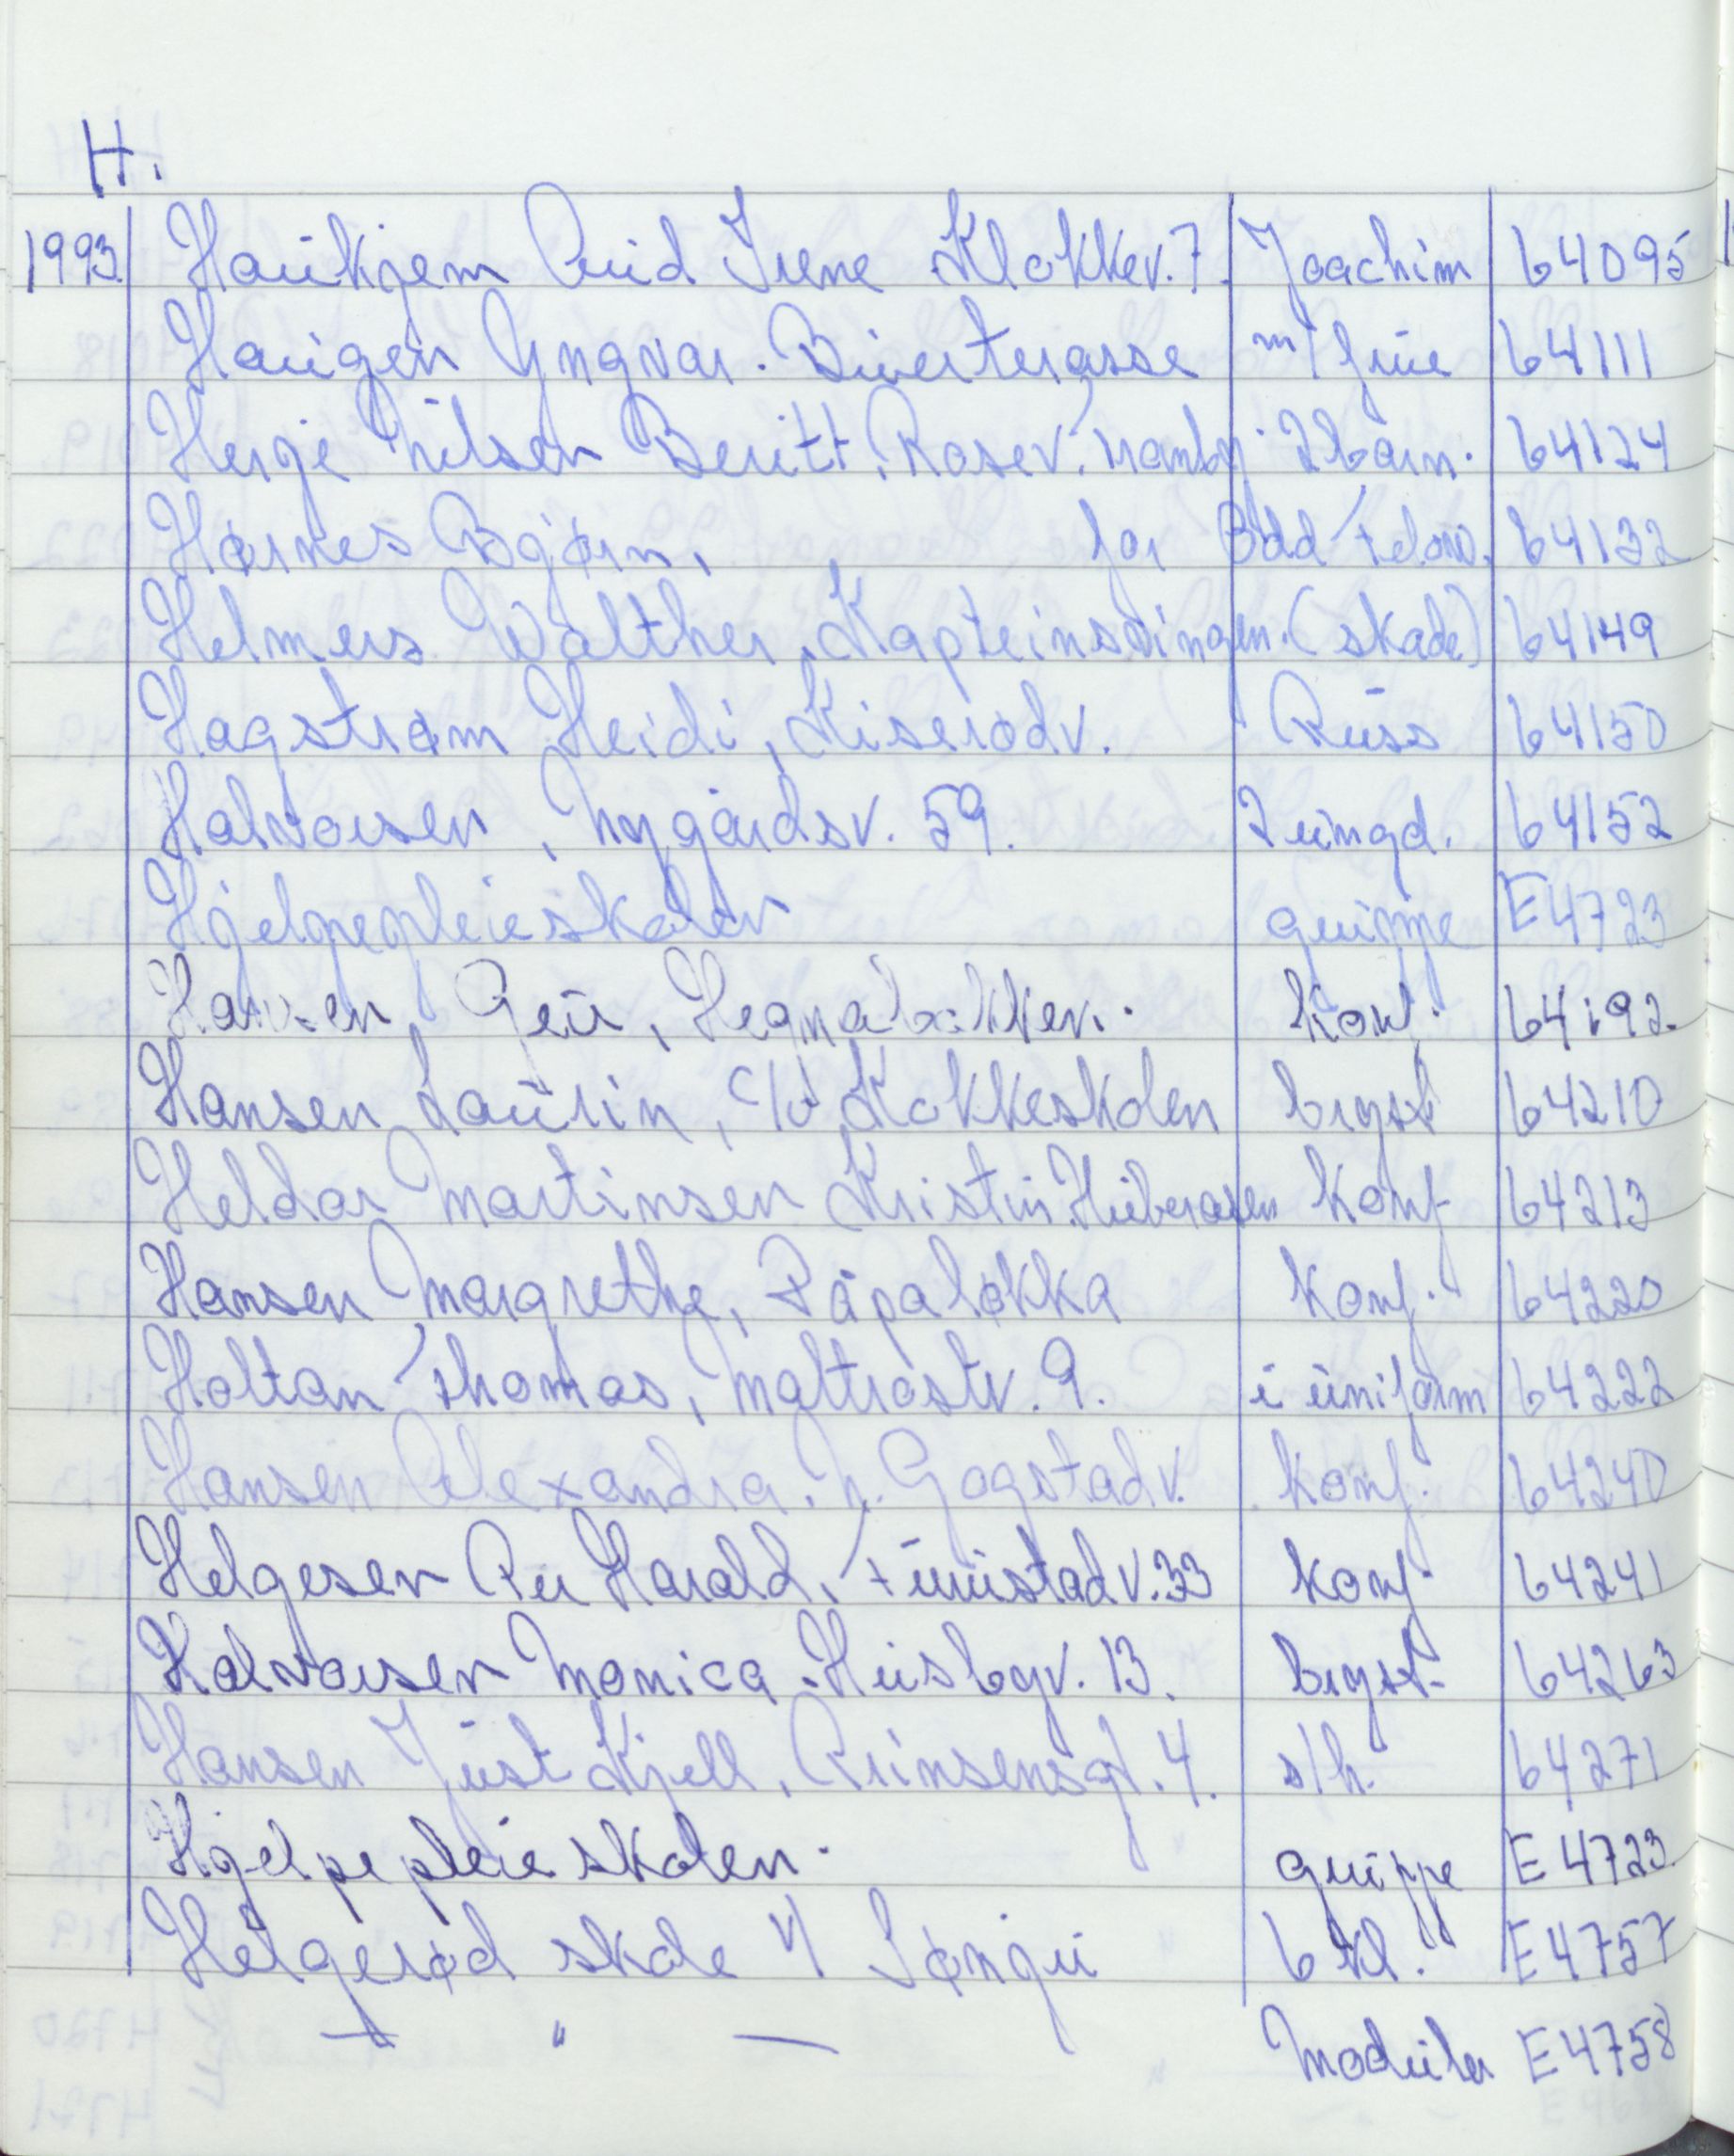 H.
1993 Haukjem Aud Irene Klokkev. 7. Joachim 64095
Haugen Yngvar. Bueterasse m/frue 64111
Herje Nilsen Beritt, Rosev. Tranby 2 barn. 64124
Hørnes Bjørn, for Odd 64132
Helmers Walther, Kapteinsvingen. (skade) 64149
Hagstrøm Heidi, Kiserødv. Russ 64150
Halvorsen, Nygårdsv. 59. 2 ungd. 64152
Hjelpepleieskolen gruppe E4723
Hansen, Geir, Hegnabakken. Konf. 64192
Hansen Laurin, c/o Kokkeskolen bryst 64210
Heldar Martinsen Kristin. Huberåsen Konf 64213
Hansen Margrethe, Råpaløkka Konf. 64220
Holtan Thomas, Matrostv. 9. i uniform 64222
Hansen Alexandra. N. Gogstadv. Konf. 64240
Helgesen Per Harald, Furustadv. 33 Konf 64241
Halvorsen Monica. Husbyv. 13. bryst. 64263
Hansen Just Kjell, Prinsensgt. 4. s/h. 64271
Hjelpepleieskolen. gruppe E4723
Helgerød skole v/ Søngu 6 kl. E4757
— " — Moduler E4758